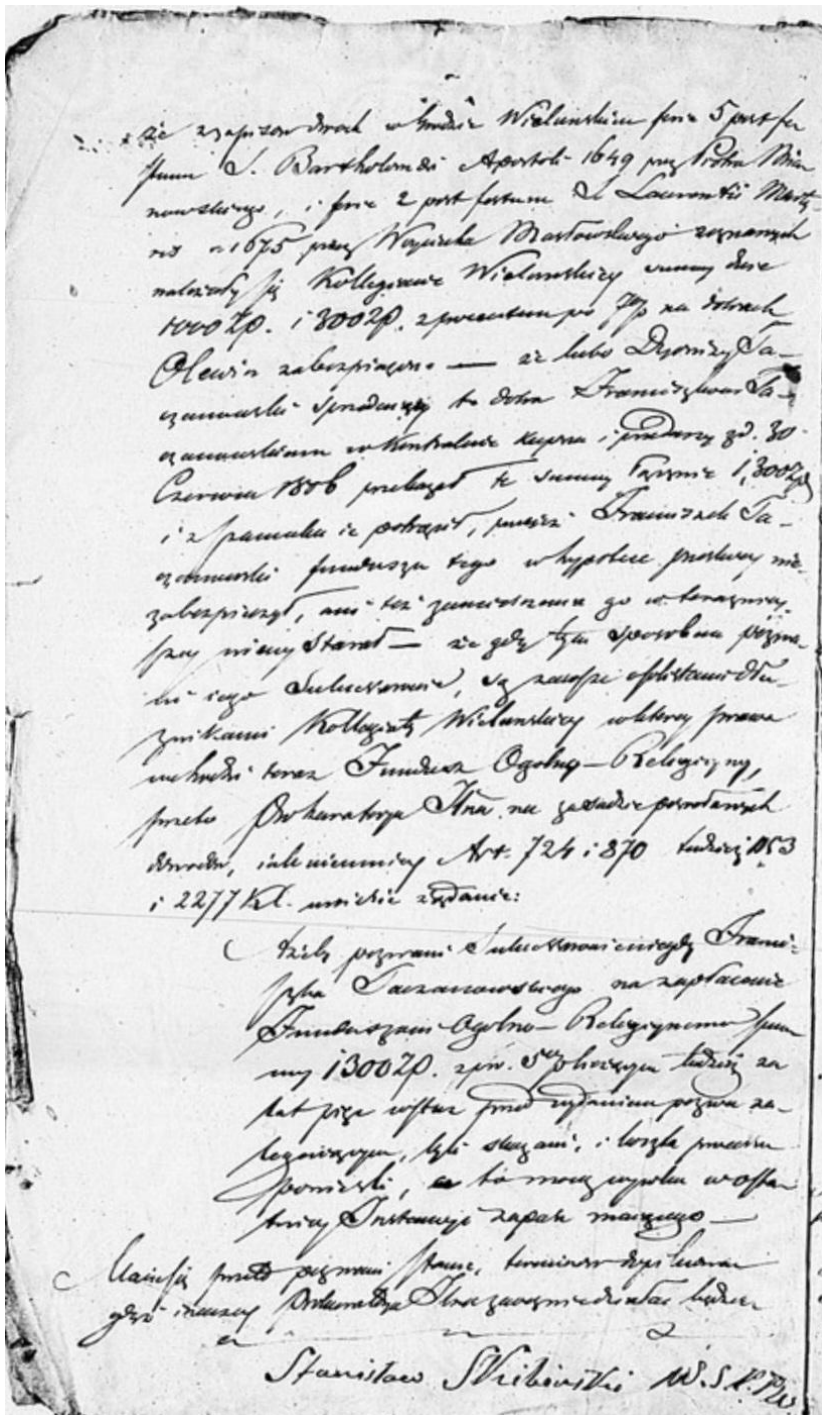 że z zapisów dwóch w Grodzie Wieluńskim feria 5 post fe
stum S. Bartholomei Apostoli 1649 przez Piotra Mia
nowskiego, i feria 2 post festum S. Laurentii Marty
ris a 1675 przez Wojciecha Masłowskiego zeznanych
należały się Kollegiacie Wieluńskiey summy dwie
1000 Zp. i 300 Zp. z procentem po 7% na dobrach
Olewin zabezpieczone — że lubo Dyonizy Ta-
czanowski sprzedając te dobra Franciszkowi Ta-
czanowskiemu w Kontrakcie kupna i przedaży z d. 30
Czerwca 1806 przekazał te summy łącznie 1,300 Zp
i z szacunku je potrącił, przecież Franciszek Ta-
czanowski funduszu tego w hypotece pruskiey nie
zabezpieczył, ani też zamieszczenia go w terazniey-
szey nie starał — że gdy tym sposobem pozwa-
ni iego Sukcessorowie, są zawsze osobistemi dłu-
żnikami Kollegiaty Wieluńskiey w którey prawa
wchodzi teraz Fundusz Ogolno-Religiyny,
przeto Prokuratorya na zasadzie powołanych
dowodów, iako niemniey Art. 724 i 870 tudzież
i 2277 umieścić żądanie:
Ażeby pozwani Sukcessorowie niegdy Franci-
szka Taczanowskiego na zapłacenie
Funduszowi Ogolno-Religiynemu sum
my 1300 Zp. z pr. 5% bieżącym tudzież za
lat pięć wstecz przed wydaniem pozwu za-
legaiącym, byli skazani, i koszta processu
ponieśli, a to mocą wyroku w osta
tniey Instancyi zapaść maiącego —
Maią się przeto pozwani stawić, terminów dopilnować
gdyż inaczey Prokuratorya zaocznie działać będzie
Stanisław